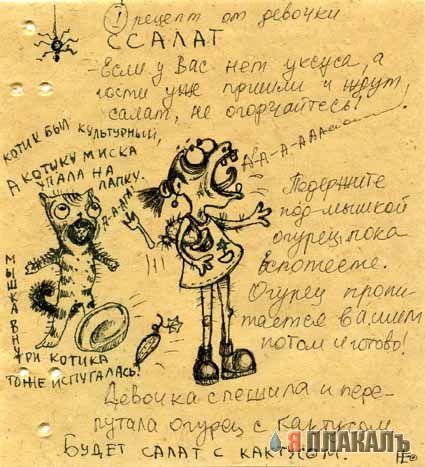 ① рецепт от девочки
ССАЛАТ
- Если у Вас нет уксуса, а
гости уже пришли и ждут
салат, не огорчайтесь!
А-А-А-ААааааа...
Подержите
под мышкой
огурец, пока
вспотеете.
Огурец пропи-
тается вашим
потом и готово!
КОТИК БЫЛ КУЛЬТУРНЫЙ,
А КОТИКУ МИСКА
УПАЛА НА
ЛАПКУ.
А-А-АА!
МЫШКА ВНУ
ТРИ КОТИКА
ТОЖЕ ИСПУГАЛАСЬ!
Девочка спешила и пере-
путала огурец с кактусом
БУДЕТ САЛАТ С КАКТУСОМ.
ЯПЛАКАЛЪ